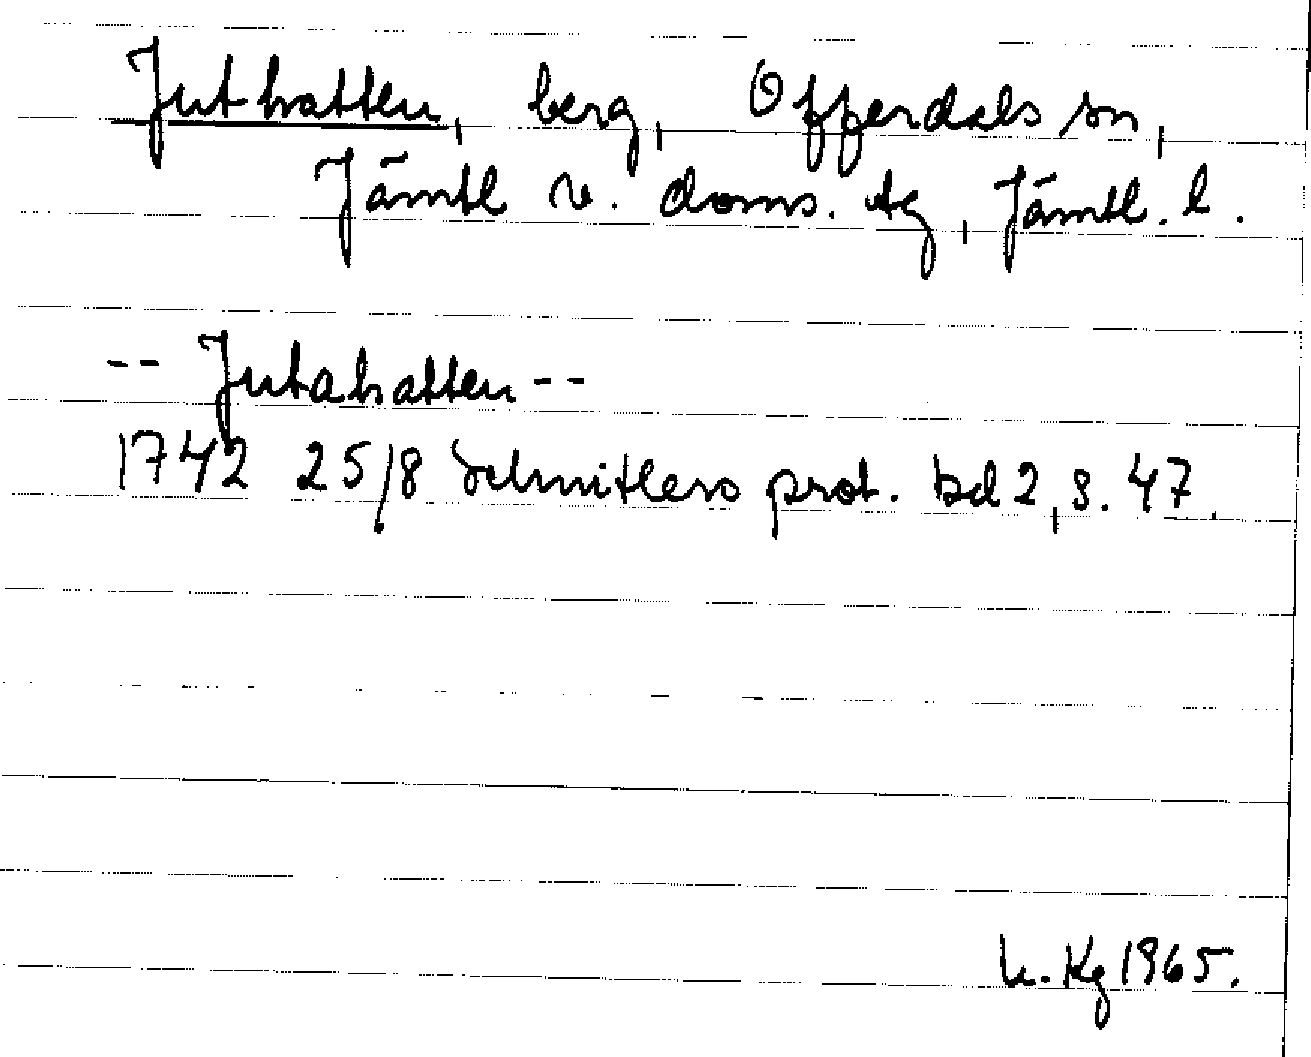 Juthatten, berg, Offerdals sn,
Jämtl v. doms. tg, Jämtl. l.
-- Jutahatten --
1742 25/8 Schnitlers prot. bd 2, s. 47.
K. Kg 1965.